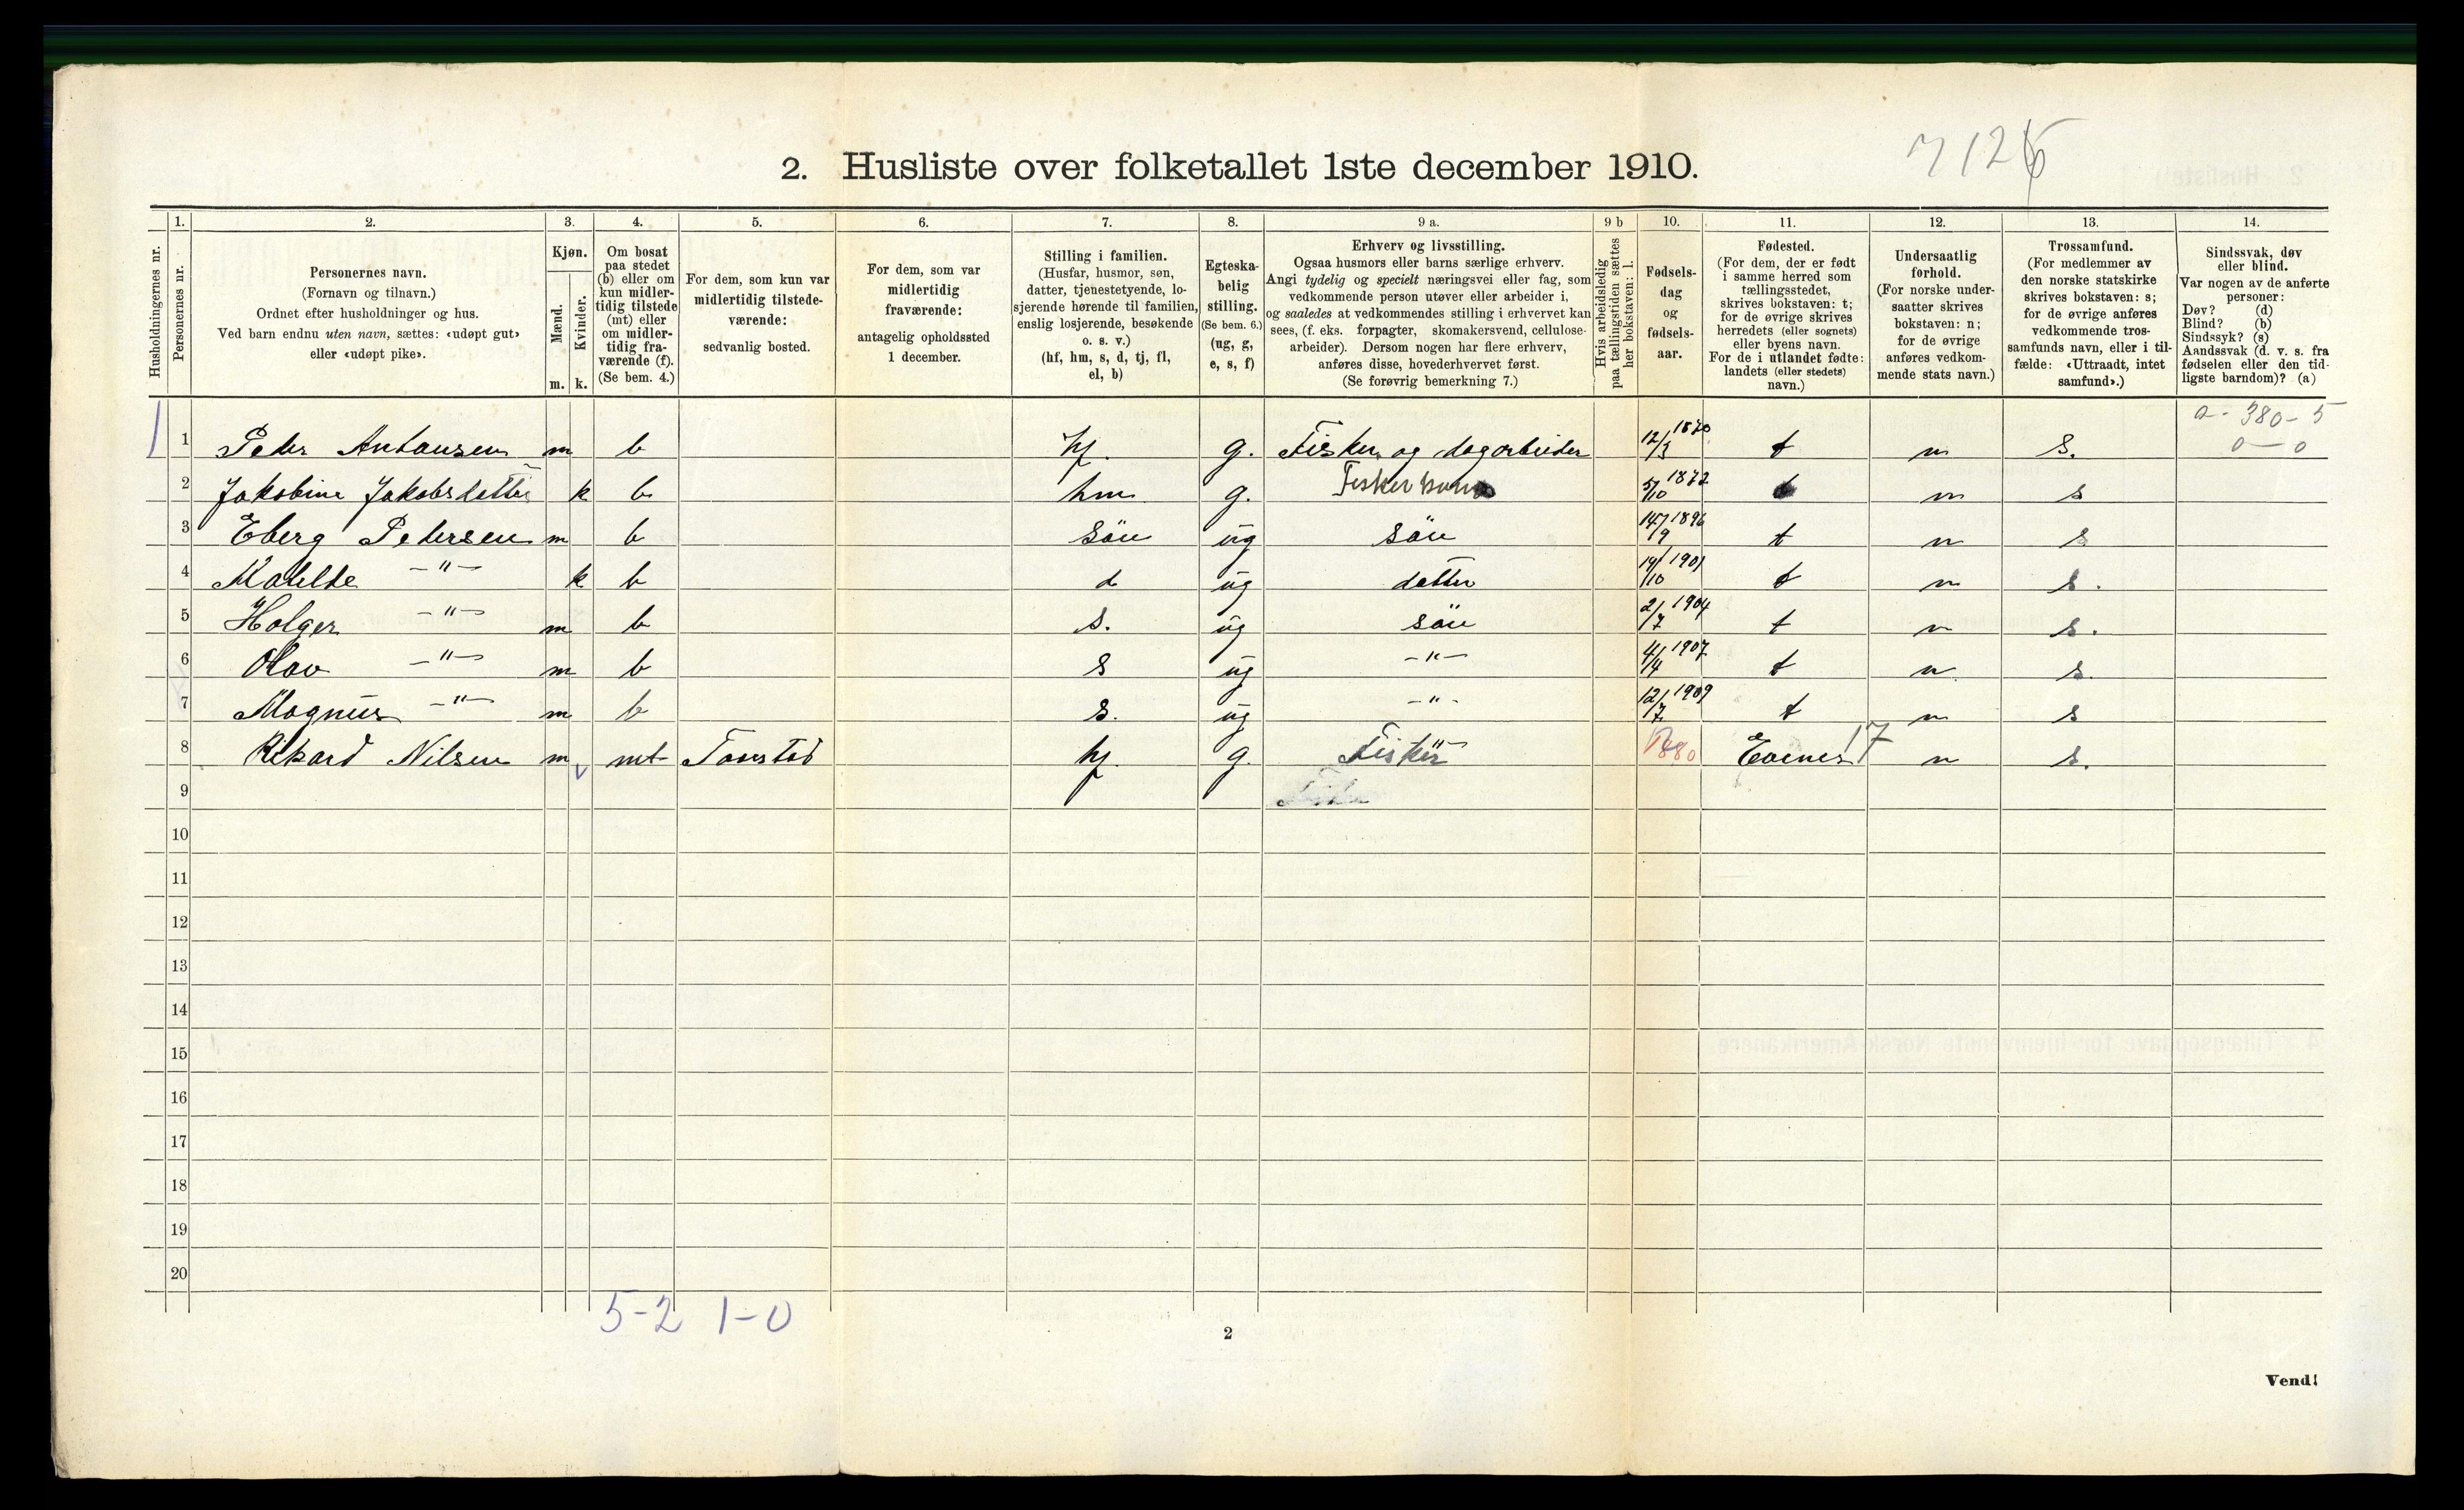 7126
2. Husliste over folketallet 1ste december 1910.
1. 2. 3. 4. 5. 6. 7. 8. 9 a. 9 b 10. 11. 12. 13. 14.
Husholdningernes nr.
Personernes nr.
Personernes navn.
(Fornavn og tilnavn.)
Ordnet efter husholdninger og hus.
Ved barn endnu uten navn, sættes: «udøpt gut»
eller «udøpt pike».
Kjøn.
Mænd.
Kvinder.
m. k.
Om bosat
paa stedet
(b) eller om
kun midler-
tidig tilstede
(mt) eller
om midler-
tidig fra-
værende (f).
(Se bem. 4.)
For dem, som kun var
midlertidig tilstede-
værende:
sedvanlig bosted.
For dem, som var
midlertidig
fraværende:
antagelig opholdssted
1 december.
Stilling i familien.
(Husfar, husmor, søn,
datter, tjenestetyende, lo-
sjerende hørende til familien,
enslig losjerende, besøkende
o. s. v.)
(hf, hm, s, d, tj, fl,
el, b)
Egteska-
belig
stilling.
(Se bem. 6.)
(ug, g,
e, s, f)
Erhverv og livsstilling.
Ogsaa husmors eller barns særlige erhverv.
Angi tydelig og specielt næringsvei eller fag, som
vedkommende person utøver eller arbeider i,
og saaledes at vedkommendes stilling i erhvervet kan
sees, (f. eks. forpagter, skomakersvend, cellulose-
arbeider). Dersom nogen har flere erhverv,
anføres disse, hovederhvervet først.
(Se forøvrig bemerkning 7.)
Hvis arbeidsledig
paa tællingstiden sættes
her bokstaven: l.
Fødsels-
dag
og
fødsels-
aar.
Fødested.
(For dem, der er født
i samme herred som
tællingsstedet,
skrives bokstaven: t;
for de øvrige skrives
herredets (eller sognets)
eller byens navn.
For de i utlandet fødte:
landets (eller stedets)
navn.)
Undersaatlig
forhold.
(For norske under-
saatter skrives
bokstaven: n;
for de øvrige
anføres vedkom-
mende stats navn.)
Trossamfund.
(For medlemmer av
den norske statskirke
skrives bokstaven: s;
for de øvrige anføres
vedkommende tros-
samfunds navn, eller i til-
fælde: «Uttraadt, intet
samfund».)
Sindssvak, døv
eller blind.
Var nogen av de anførte
personer:
Døv? (d)
Blind? (b)
Sindssyk? (s)
Aandssvak (d. v. s. fra
fødselen eller den tid-
ligste barndom)? (a)
0 - 380 - 5
0 — 0
1 1 Peder Antonsen m b hf. g. Fisker og dagarbeider 12/3 1870 t n s.
2 Jakobine Jakobsdatter k b hm g. Fisker kone 5/10 1872 t n s
3 Eberg Pedersen m b sön ug sön 14/9 1896 t n s
4 Matelde -"- k b d ug datter 19/10 1901 t n s.
5 Holger -"- m b s. ug sön 2/7 1904 t n s.
6 Olav -"- m b s ug -"- 4/4 1907 t n s.
7 Magnus -"- m b s. ug -"- 12/7 1909 t n s
8 Rikard Nilsen m mt hf. g. Fisker 1880 Evenes 17 n s.
9
10
11
12
13
14
15
16
17
18
19
20
5-2 1-0
2
Vend!